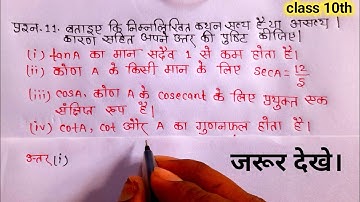 class 10th
प्रश्न.11. बताइए कि निम्नलिखित कथन सत्य हैं या असत्य।
कारण सहित अपने उत्तर की पुष्टि कीजिए।
(i) tanA का मान सदैव 1 से कम होता है।
(ii) कोण A के किसी मान के लिए SecA = 12/5
(iii) cosA, कोण A के cosecant के लिए प्रयुक्त एक
संक्षिप्त रूप है।
(iv) cotA, cot और A का गुणनफल होता है।
उत्तर (i)
जरूर देखे।